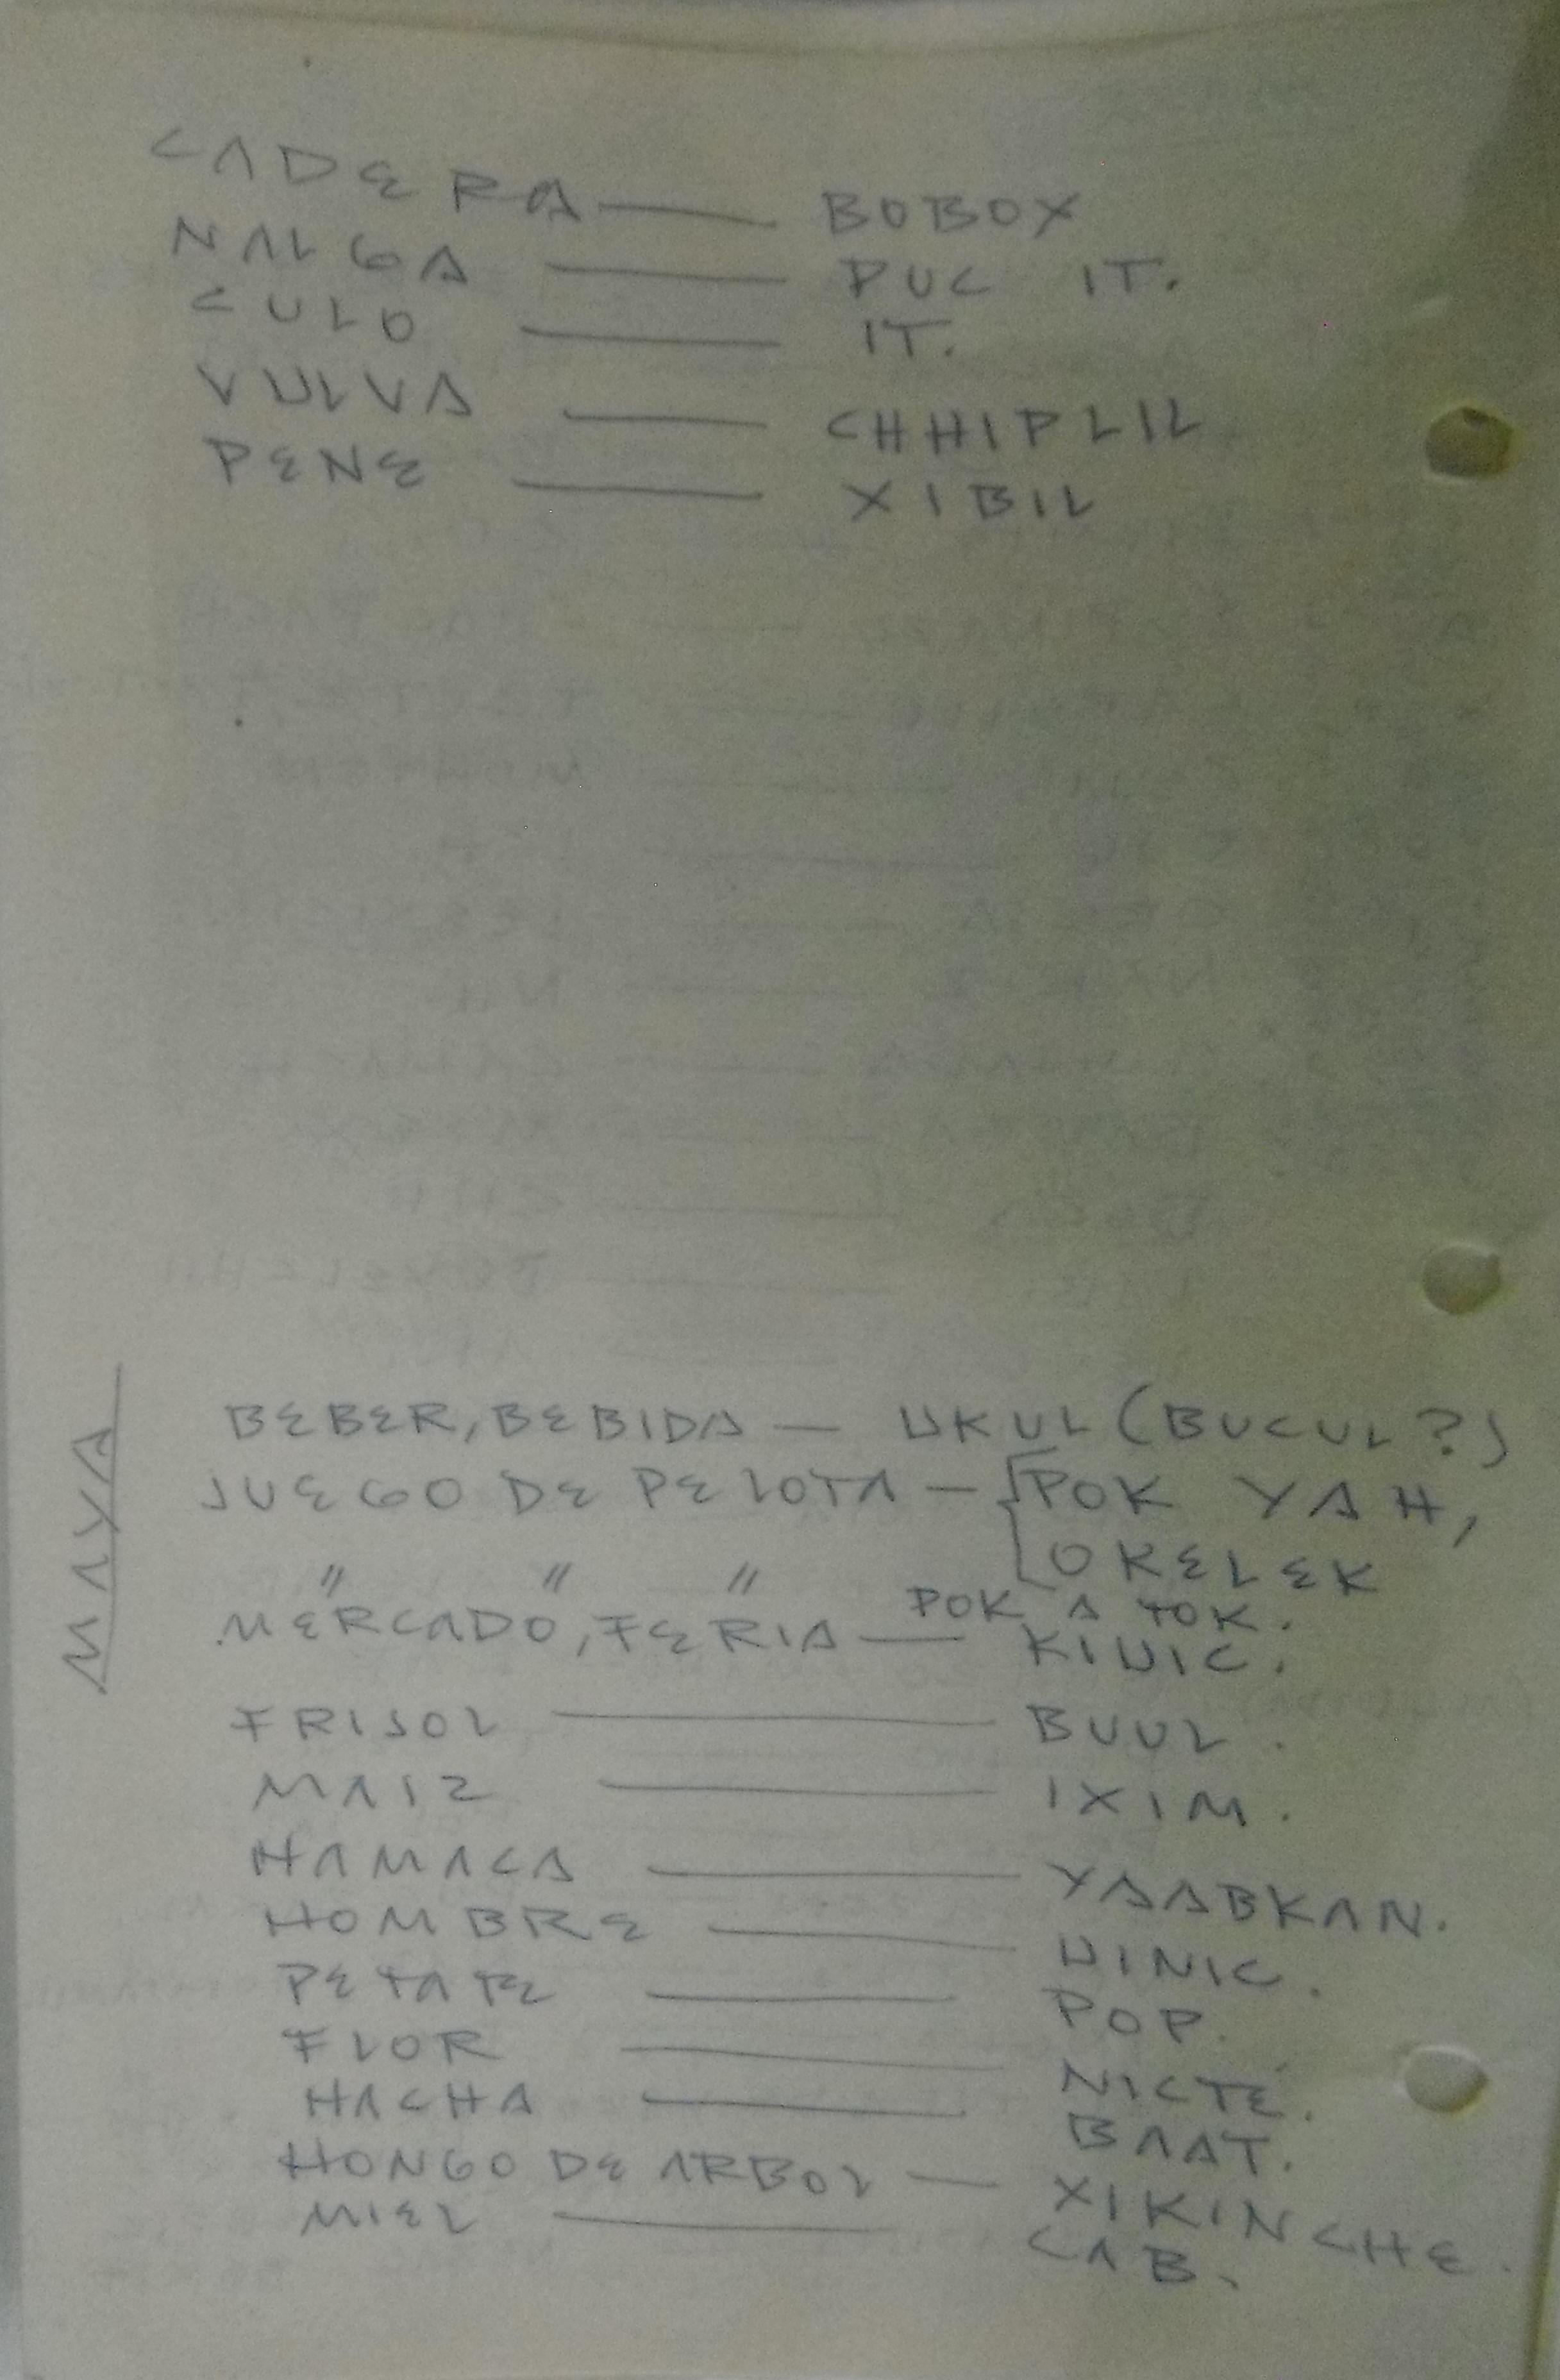 CADERA — BOBOX
NALGA — PUC IT.
CULO — IT.
VULVA — CHHIPLIL
PENE — XIBIL
MAYA
BEBER, BEBIDA — UKUL (BUCUL?)
JUEGO DE PELOTA — POK YAH,
OKELEK
" " " POK A TOK.
MERCADO, FERIA — KIUIC.
FRIJOL — BUUL.
MAIZ — IXIM.
HAMACA — YAABKAN.
HOMBRE — UINIC.
PETATE — POP.
FLOR — NICTE.
HACHA — BAAT.
HONGO DE ARBOL — XIKINCHE.
MIEL — CAB.